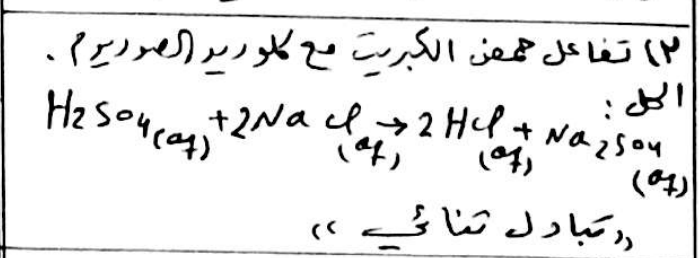 ٢) تفاعل حمض الكبريت مع كلوريد الصوديوم.
الحل:
H2SO4(aq) + 2NaCl(aq) → 2HCl(aq) + Na2SO4(aq)
"تبادل ثنائي"